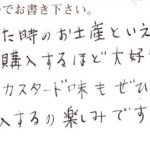 でお書き下さい。
た時のお土産といえ
購入するほど大好
カスタード味もぜひ
入するの楽しみです